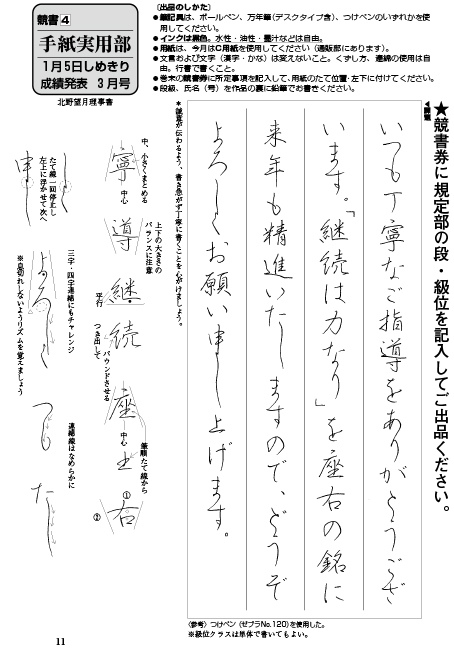 競書4
手紙実用部
1月5日しめきり
成績発表 3月号
北野望月理事書
〔出品のしかた〕
●筆記具は、ボールペン、万年筆(デスクタイプ含)、つけペンのいずれかを使用してください。
●インクは黒色。水性・油性・墨汁などは自由。
●用紙は、今月はC用紙を使用してください(通販部にあります)。
●文言および文字(漢字・かな)は変えないこと。くずし方、連綿の使用は自由。行書で書くこと。
●巻末の競書券に所定事項を記入して、用紙のたて位置・左下に付けてください。
●段級、氏名(号)を作品の裏に鉛筆でお書きください。
★競書券に規定部の段・級位を記入してご出品ください。
◀課題
いつも丁寧なご指導をありがとうござ
います。「継続は力なり」を座右の銘に
来年も精進いたしますので、どうぞ
よろしくお願い申し上げます。
*誠意が伝わるよう、書き急がず丁寧に書くことを心がけましょう。
中、小さくまとめる
寧
中心
上下の大きさのバランスに注意
導
継
平行
続
つき出して
バウンドさせる
座
中心
筆順たて線から
右
①
②
たて線一回停止し
左上に浮かせて次へ
申し
三字・四字連綿にもチャレンジ
よろしく
※息切れしないようリズムを覚えましょう
連綿線はなめらかに
つも
たし
〈参考〉つけペン(ゼブラNo.120)を使用した。
※級位クラスは単体で書いてもよい。
11